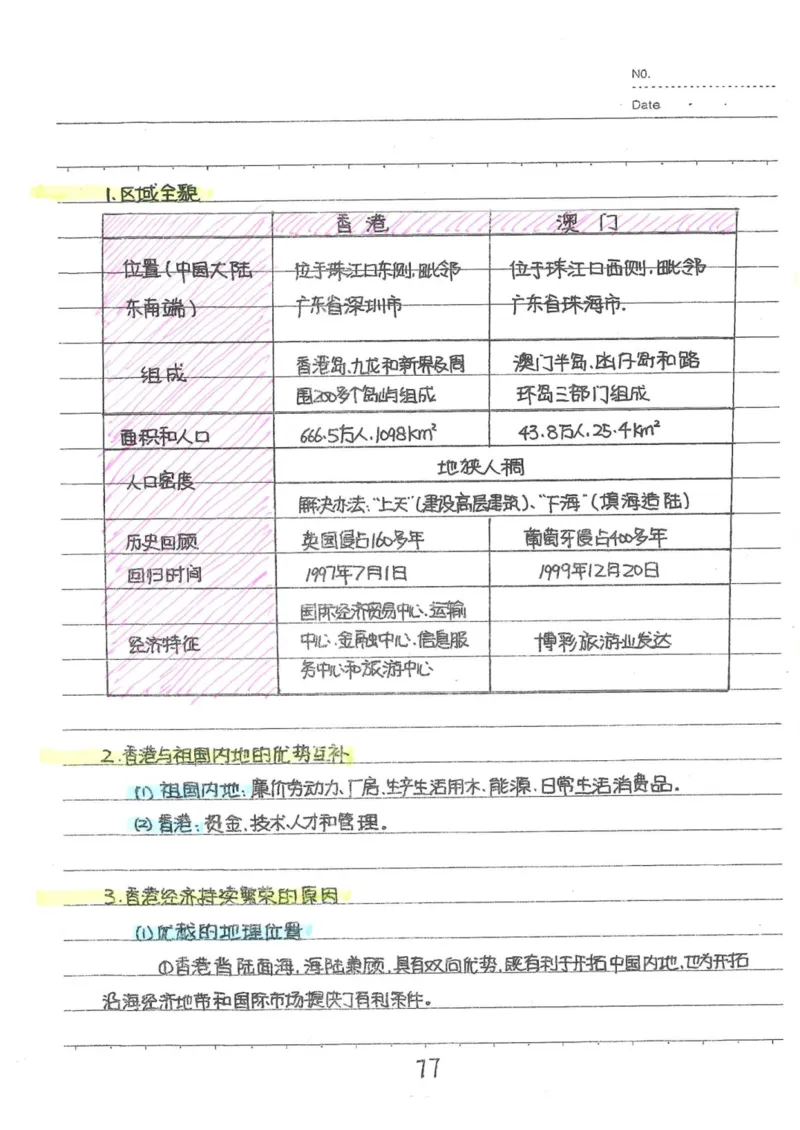 NO.
Date
1.区域全貌
香港 澳门
位置(中国大陆 位于珠江口东侧,毗邻 位于珠江口西侧,毗邻
东南端) 广东省深圳市 广东省珠海市.
组成 香港岛、九龙和新界及周 澳门半岛、氹仔町和路
围200多个岛屿组成 环岛三部门组成
面积和人口 666.5万人.1098km² 43.8万人.25.4km²
人口密度 地狭人稠
解决办法:"上天"(建设高层建筑)、"下海"(填海造陆)
历史回顾 英国侵占160多年 葡萄牙侵占400多年
回归时间 1997年7月1日 1999年12月20日
国际经济贸易中心、运输
经济特征 中心、金融中心、信息服 博彩旅游业发达
务中心和旅游中心
2.香港与祖国内地的优势互补
(1)祖国内地:廉价劳动力、厂房、生产生活用水、能源、日常生活消费品。
(2)香港:资金、技术、人才和管理。
3.香港经济持续繁荣的原因
(1)优越的地理位置
①香港背陆面海,海陆兼顾,具有双向优势,既有利于开拓中国内地,也为开拓
沿海经济地带和国际市场提供了有利条件。
77